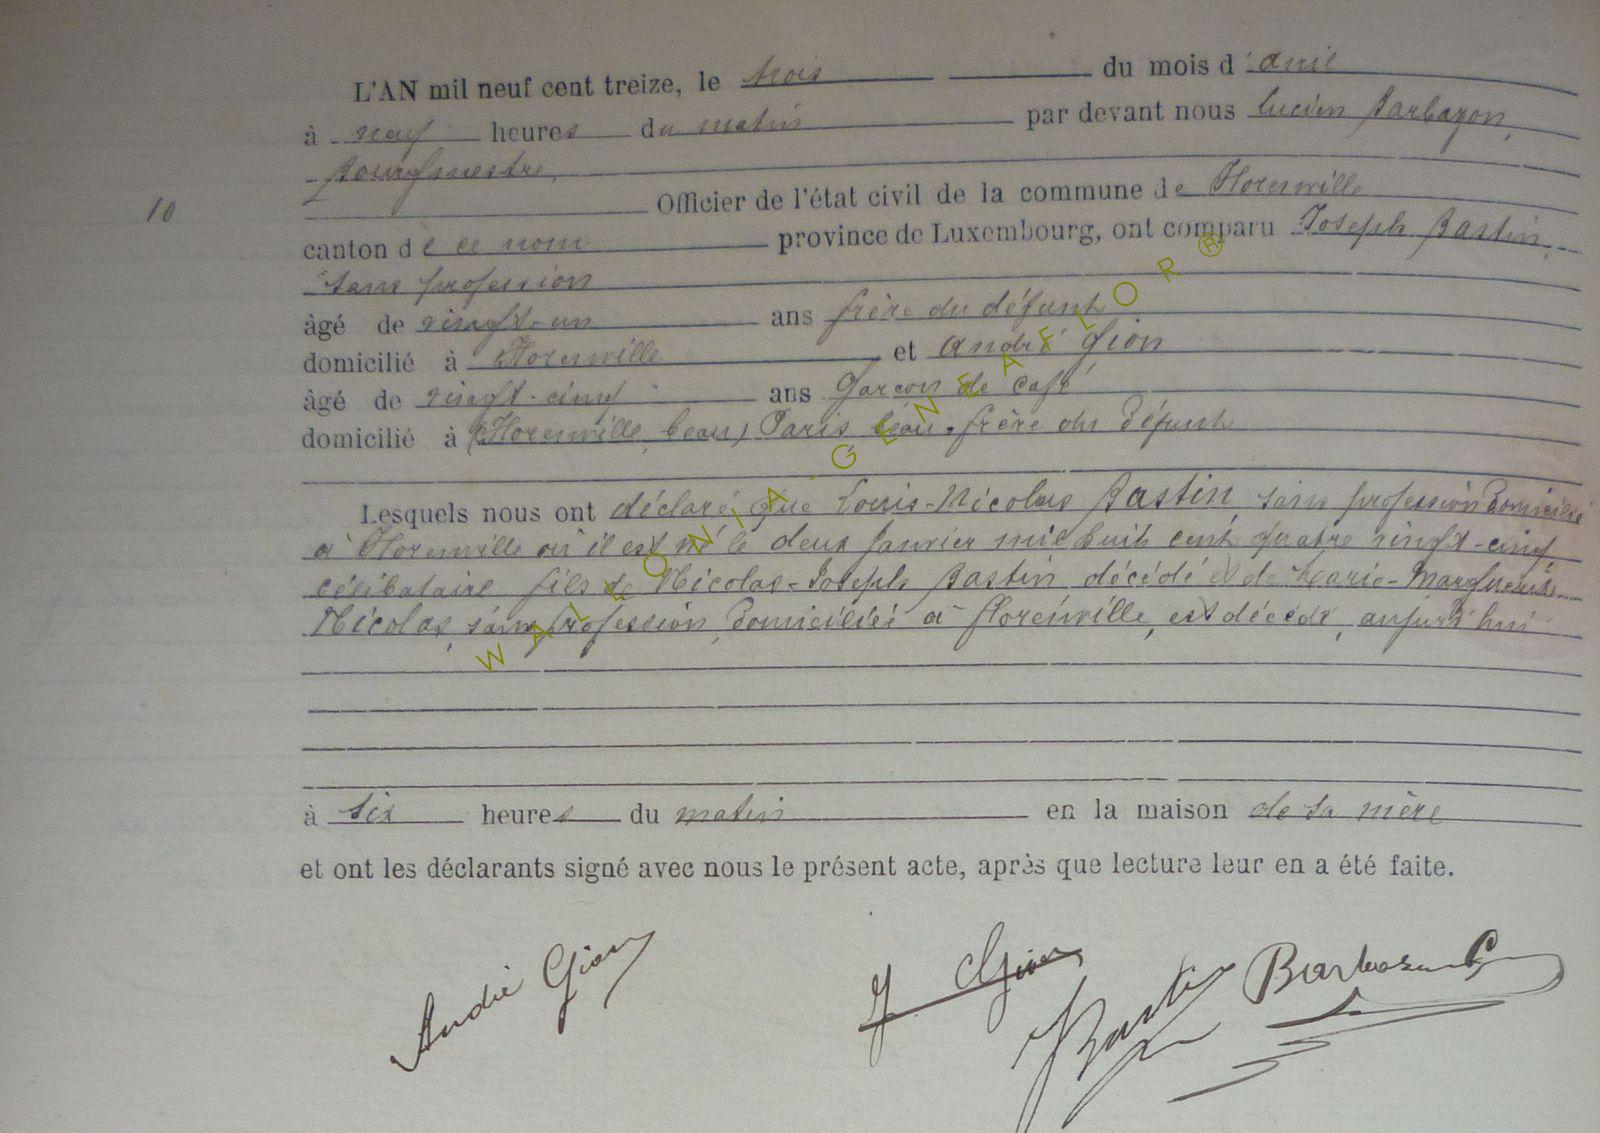 L'AN mil neuf cent treize, le trois du mois d'avril
à neuf heures du matin par devant nous Lucien Barbazon,
Bourgmestre,
10
Officier de l'état civil de la commune de Florenville
canton de ce nom province de Luxembourg, ont comparu Joseph Bastin,
sans profession
âgé de vingt-un ans frère du défunt
domicilié à Florenville et André Gion
âgé de vingt-cinq ans Garçon de café
domicilié à (Florenville, beau) Paris beau-frère du Défunt
Lesquels nous ont déclaré que Louis-Nicolas Bastin, sans profession Domicilié
à Florenville où il est né le deux Janvier mil huit cent quatre vingt-cinq
célibataire fils de Nicolas-Joseph Bastin décédé et de Marie-Marguerite
Nicolas, sans profession, Domiciliée à Florenville, est décédé, aujourd'hui
à six heures du matin en la maison de sa mère
et ont les déclarants signé avec nous le présent acte, après que lecture leur en a été faite.
André Gion J Gion Bastin Barbazon
WALLONIA GENEAFLOR ®